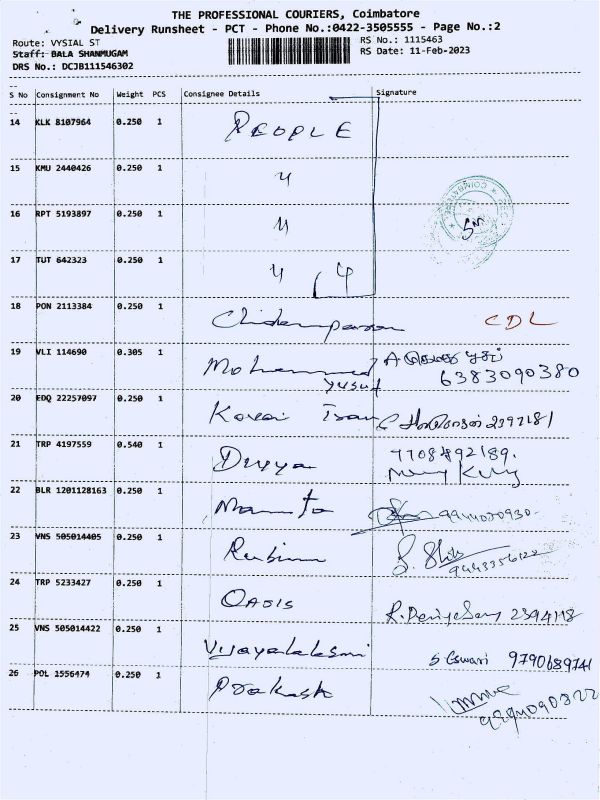 THE PROFESSIONAL COURIERS, Coimbatore
Delivery Runsheet - PCT - Phone No.:0422-3505555 - Page No.:2
Route: VYSIAL ST
RS No.: 1115463
Staff: BALA SHANMUGAM
RS Date: 11-Feb-2023
DRS No.: DCJB111546302
S No Consignment No Weight PCS Consignee Details Signature
14 KLK 8107964 0.250 1 PEOPLE
15 KMU 2440426 0.250 1 "
16 RPT 5193897 0.250 1 "
17 TUT 642323 0.250 1 " 4
18 PON 2113384 0.250 1 CDL
19 VLI 114690 0.305 1 Mohammed
yusuf 6383090380
20 EDQ 22257097 0.250 1 Kovai 2397181
21 TRP 4197559 0.540 1 Divya 7708492189.
22 BLR 1201128163 0.250 1 Mamta
23 VNS 505014405 0.250 1
24 TRP 5233427 0.250 1 OASIS 2394118
25 VNS 505014422 0.250 1 Vijayalaksmi S Eswari 9790689741
26 POL 1556474 0.250 1 Prakash